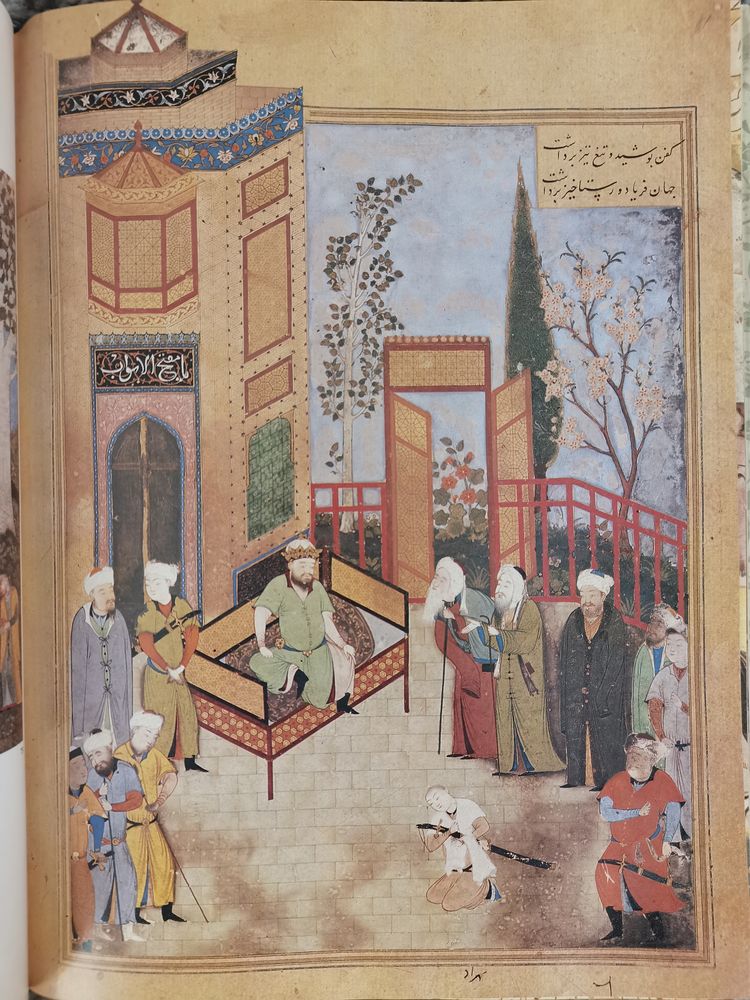 کفن پوشید و تیغ تیز برداشت
جهان فریاد و رستاخیز برداشت
یا مفتح الابواب